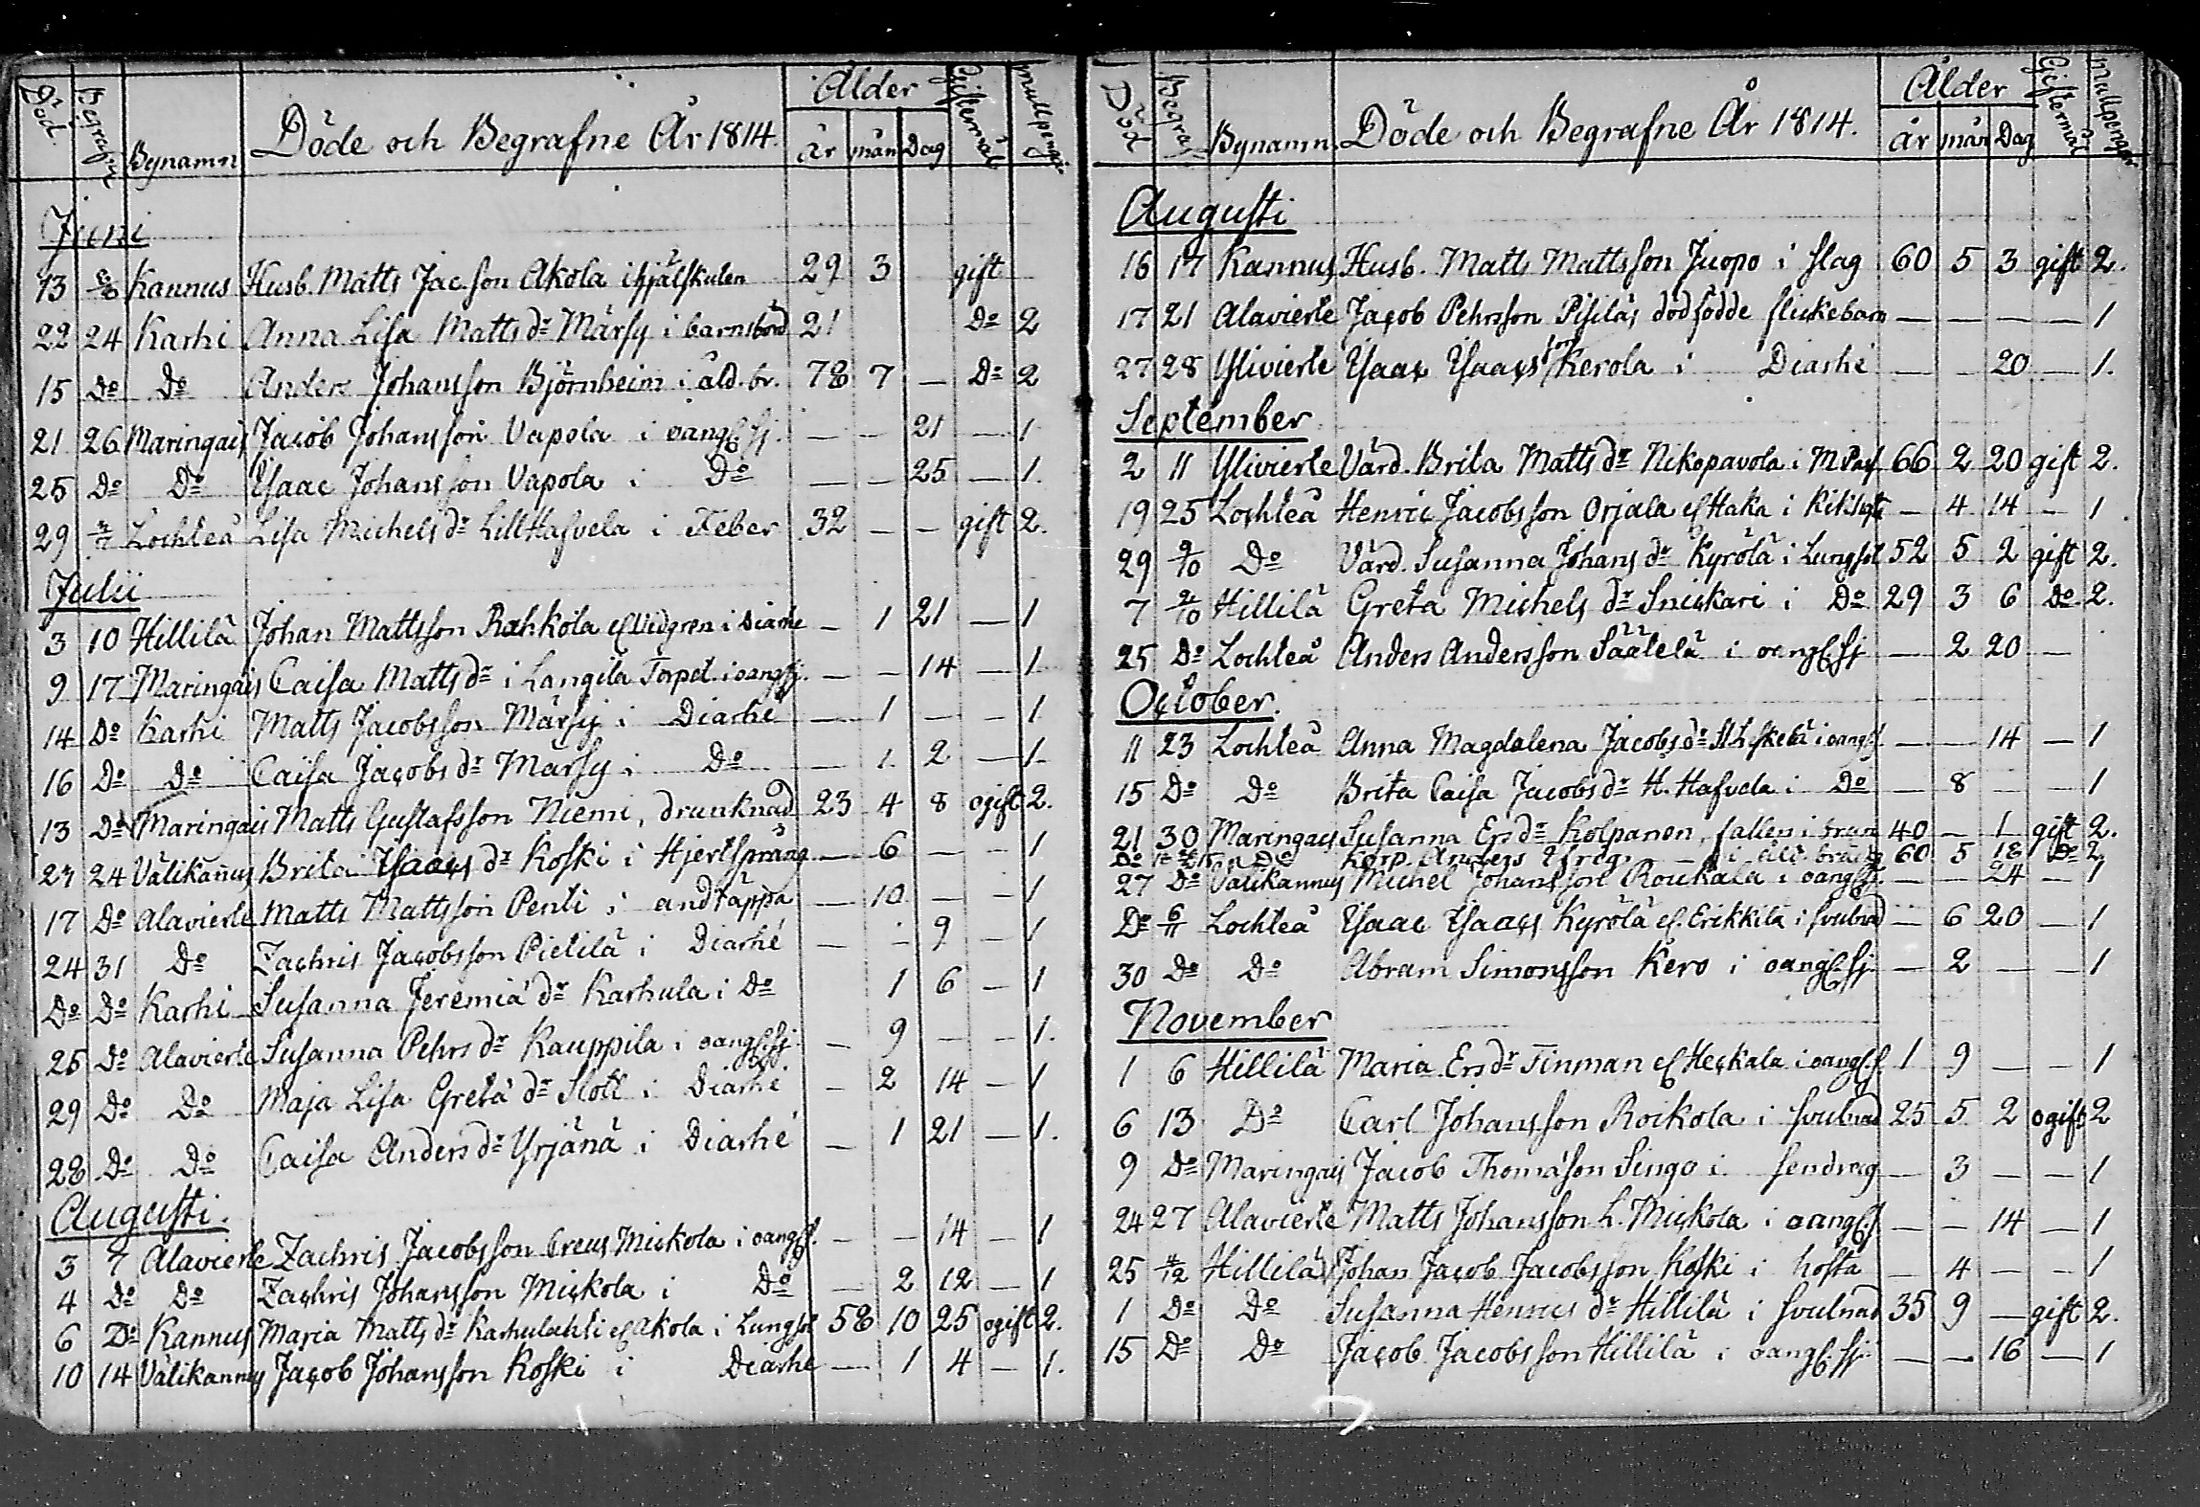 Död. Begrafn Bynamn Döde och Begrafne År 1814. Ålder år mån Dag Giftermål mullpengar
Juni
13 Kannus Husb. Matts Jacsson Akola i 29 3 gift
22 24 Karhi Anna Lisa Matts dr Märsy i barnsbörd 21 Do 2
15 Do Do Anders Johansson Björnheim i åld. br. 78 7 — Do 2
21 26 Maringais Jacob Johansson Vapola i oangf. sj. — — 21 — 1
25 Do Do Isaac Johansson Vapola i Do — — 25 — 1.
29 Lochteå Lisa Michels dr Lill Hafvela i Feber 32 — — gift 2.
Julii
3 10 Hillilä Johan Mattsson Rahkola ef Widgren i Diarhé — 1 21 — 1
9 17 Maringais Caisa Matts dr i Langila Torpet i oangf sj. — — 14 — 1
14 Do Karhi Matts Jacobsson Märsy i Diarhé — 1 — — 1
16 Do Do Caisa Jacobs dr Märsy i Do — 1 2 — 1
13 Do Maringais Matts Gustafsson Niemi, drunknad 23 4 8 ogift 2.
24 Välikannus Brita Isaacs dr Koski i Hjertsprång — 6 — — 1
17 Do Alavierte Matts Mattsson Penti i andtäppa — 10 — — 1
24 31 Do Zachris Jacobsson Pietilä i Diarhé — — 9 — 1
Do Do Karhi Susanna Jeremiä dr Karhula i Do 1 6 — 1
25 Do Alavierte Susanna Pehrs dr Kauppila i oangf. sj. — 9 — — 1.
29 Do Do Maja Lisa Greta dr Slott i Diarhé — 2 14 — 1
28 Do Do Caisa Anders dr Yrjänä i Diarhé — 1 21 — 1.
Augusti.
3 7 Alavierte Zachris Jacobsson Creus Mickola i oangf. — — 14 — 1
4 Do Do Zachris Johansson Mickola i Do — 2 12 — 1
6 Do Kannus Maria Matts dr Karhulahti ef Akola i Lungsot 58 10 25 ogift 2.
10 14 Välikannus Jacob Johansson Koski i Diarhé — 1 4 — 1.
Död Begraf Bynamn. Döde och Begrafne År 1814. Ålder år mån Dag Giftermål mullpengar
Augusti
16 17 Kannus Husb. Matts Mattsson Juopo i slag 60 5 3 gift 2.
17 21 Alavierte Jacob Pehrsson Pisiläs dödfödde flickebarn — — — — 1
27 28 Ylivierte Isaac Isaacsson Kerola i Diarhé — — 20 — 1.
September
2 11 Ylivierte Värd. Brita Matts dr Nikopavola i 66 2 20 gift 2.
19 25 Lochteå Henric Jacobsson Orjala ef Haka i Kikhosta — 4 14 — 1.
29 9/10 Do Värd. Susanna Johans dr Kyrölä i Lungsot 52 5 2 gift 2.
7 2/10 Hillilä Greta Michels dr Snickari i Do 29 3 6 Do 2.
25 Do Lochteå Anders Andersson Säätelä i oangf. sj — 2 20 —
October.
11 23 Lochteå Anna Magdalena Jacobs dr i oangf. — — 14 — 1
15 Do Do Brita Caisa Jacobs dr H. Hafvela i Do — 8 — — 1
21 30 Maringais Susanna Ers dr Kolpanen, fallen i brun 40 — 1 gift 2.
Do Do Korp. Anders i åld. bräckl. 60 5 18 Do 2
27 Do Välikannus Michel Johansson Roukala i oangf. sj. — — 24 — 1
Do 6/11 Lochteå Isaac Isaacs Kyrölä ef. Erikkilä i svulnad — 6 20 — 1
30 Do Do Abram Simonsson Kero i oangf. sj — 2 — — 1
November
1 6 Hillilä Maria Ers dr Tinman ef Heckala i oangf. s 1 9 — — 1
6 13 Do Carl Johansson Roikola i svulnad 25 5 2 ogift 2
9 Do Maringais Jacob Thomässon Singo i sendrag — 3 — — 1
24 27 Alavierte Matts Johansson L. Mickola i oangf. s — — 14 — 1
25 4/12 Hillilä Johan Jacob Jacobsson Koski i hosta — 4 — — 1
1 Do Do Susanna Henrics dr Hillilä i svulnad 35 9 — gift 2.
15 Do Do Jacob Jacobsson Hillilä i oangf. sj. — — 16 — 1